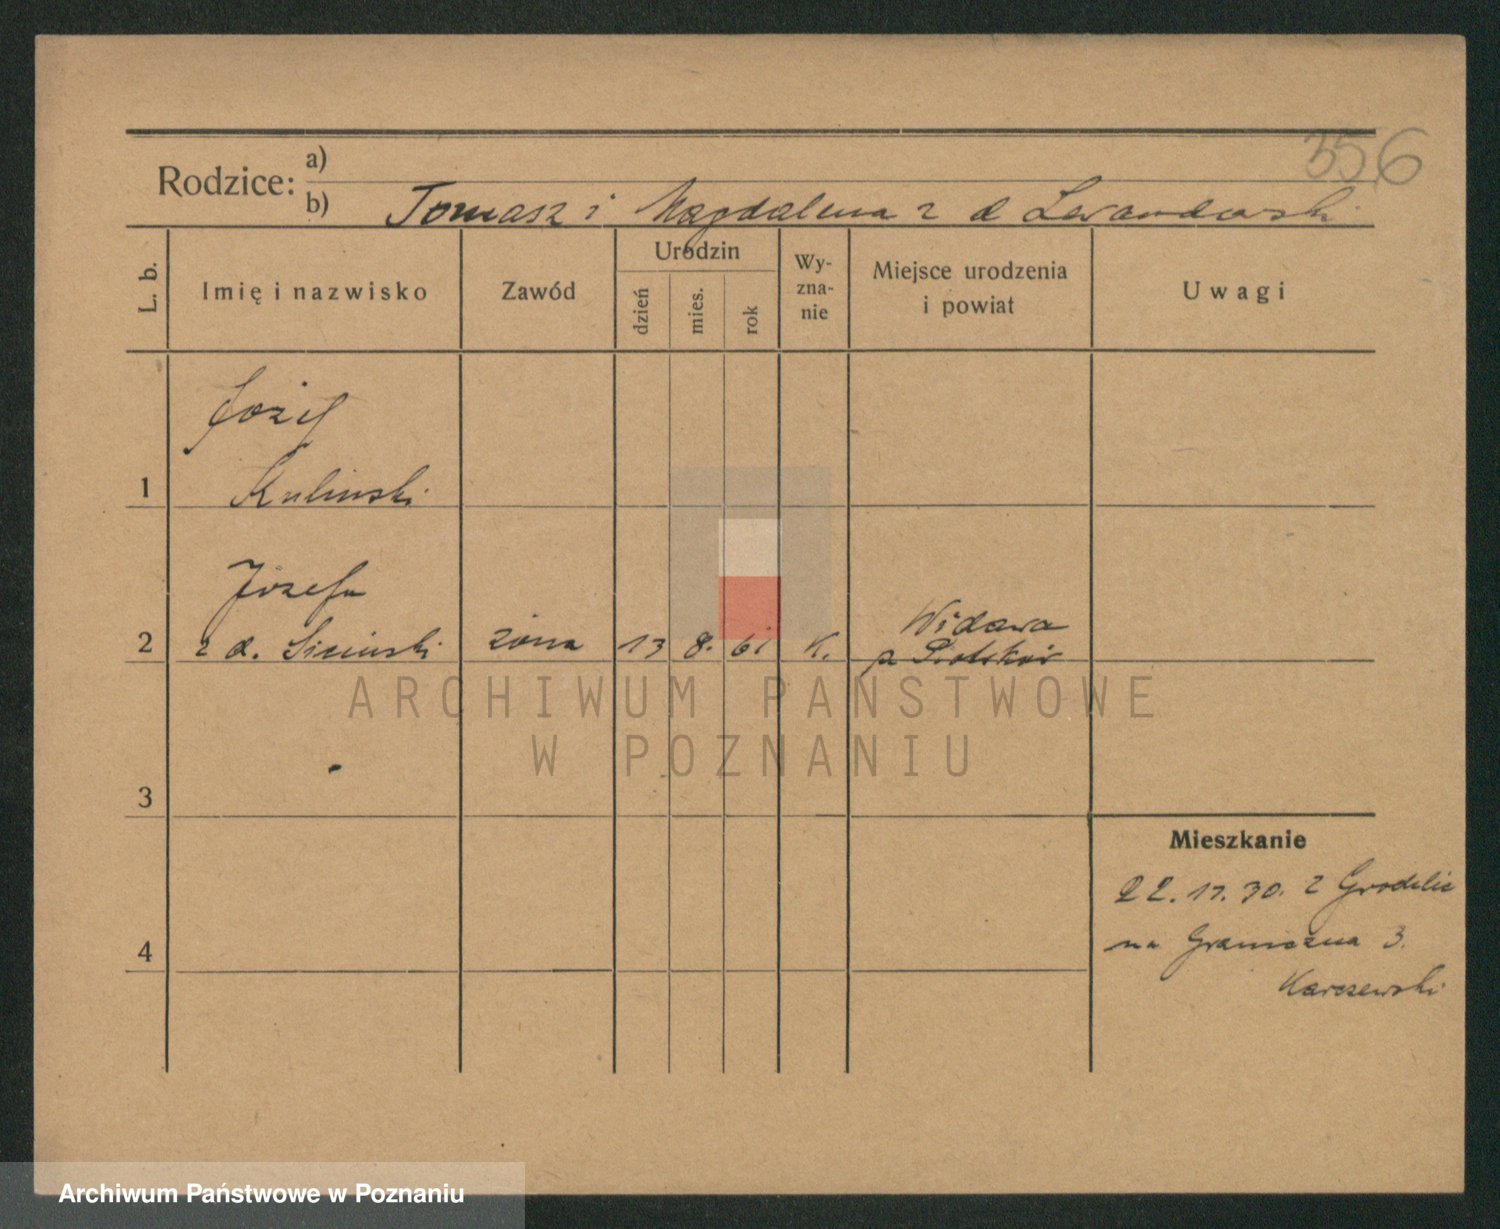 356
Rodzice:
a)
b) Tomasz i Magdalena z d Lewandowski
L. b.
Imię i nazwisko
Zawód
Urodzin
dzień
mies.
rok
Wy-
zna-
nie
Miejsce urodzenia
i powiat
Uwagi
Józef
1 Kulinski
Józefa
2 z d. Siciński żona 13 8. 61 K.
Widawa
p.
3
4
Mieszkanie
22. 11. 30. z
na Graniczna 3.
Karczewski
ARCHIWUM PAŃSTWOWE
W POZNANIU
Archiwum Państwowe w Poznaniu